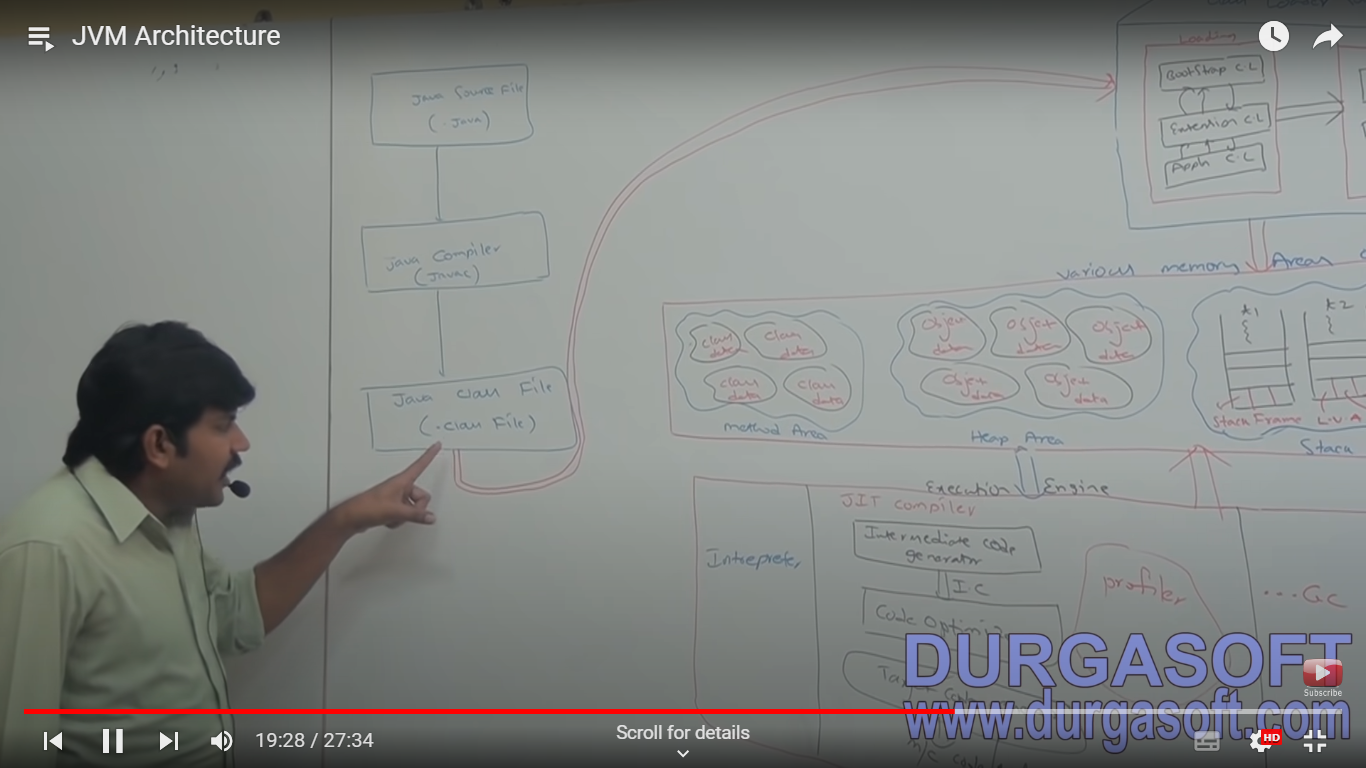 JVM Architecture
Java Source File
(.Java)
Java Compiler
(Javac)
Java Class File
(.Class File)
Loading
BootStrap C.L
Extention C.L
Appln C.L
Various memory Areas
Class data
Class data
Class data
Class data
Method Area
Object data
Object data
Object data
Object data
Object data
Heap Area
Stack Frame
L.V.A
Stack
Execution Engine
Intrepreter
JIT compiler
Intermediate code
generator
I C
Code Optimiz
profiler
...GC
DURGASOFT
www.durgasoft.com
Subscribe
19:28 / 27:34
Scroll for details
HD